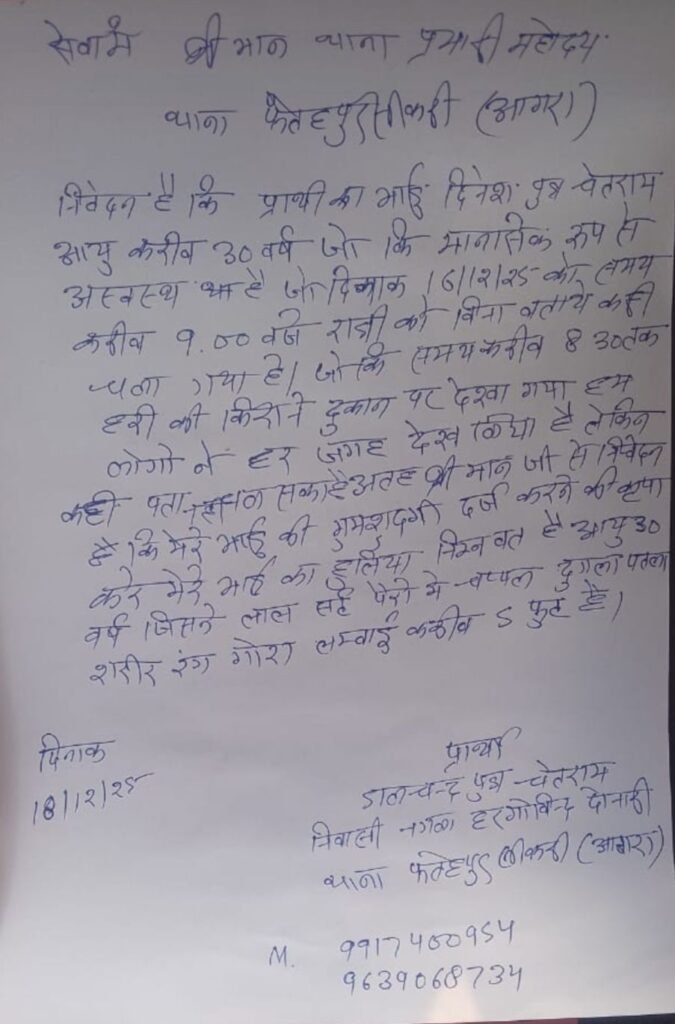 सेवामें श्री मान थाना प्रभारी महोदय
थाना फतेहपुरसीकरी (आगरा)
निवेदन है कि प्रार्थी का भाई दिनेश पुत्र चेतराम
आयु करीव 30 वर्ष जो कि मानासिक रूप से
अस्वस्थ है जो दिनाक 16/12/25 को समय
करीव 9.00 वजे रात्री को विना वताये कही
चला गया है। जो कि समय करीव 8 30 तक
हरी की किराने दुकान पर देखा गया हम
लोगो ने हर जगह देख लिया है लेकिन
कही पता नही चल सका है अतह श्री मान जी से निवेदन
है कि मेरे भाई की गुमशुदगी दर्ज करने की कृपा
करे मेरे भाई का हुलिया निम्न वत है आयु 30
वर्ष जिसने लाल सर्ट पैरो मे चप्पल दुगला पतला
शरीर रंग गोरा लम्वाई करीव 5 फुट है।
दिनाक
18/12/25
प्रार्थी
डालचन्द्र पुत्र चेतराम
निवासी नगला हरगोविन्द
थाना फतेहपुर सीकरी (आगरा)
M. 9917400954
9639068734